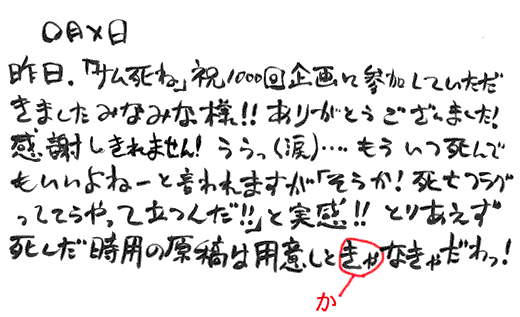 〇月×日
昨日、「サム死ね」祝1000回企画に参加していただ
きましたみなみな様!! ありがとうございました!
感謝しきれません! ううっ(涙)…. もういつ死んで
もいいよねーと言われますが「そうか! 死亡フラグ
ってこうやって立つんだ!!」と実感!! とりあえず
死んだ時用の原稿は用意しときゃなきゃだわっ!
か